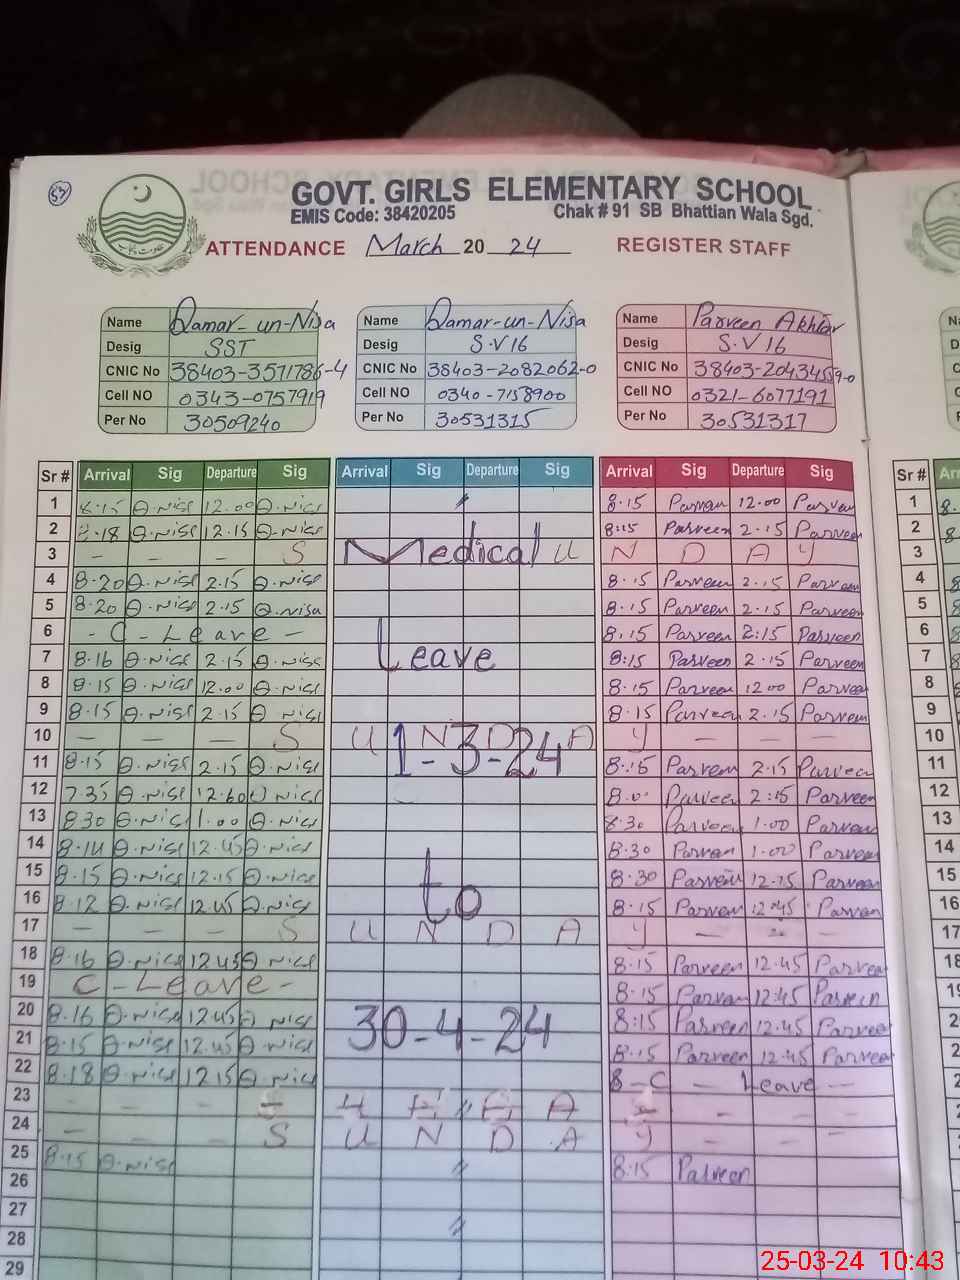 53
GOVT. GIRLS ELEMENTARY SCHOOL
EMIS Code: 38420205 Chak # 91 SB Bhattian Wala Sgd.
ATTENDANCE March 20 24 REGISTER STAFF
Name Qamar-un-Nisa Name Qamar-un-Nisa Name Parveen Akhtar
Desig SST Desig S.V 16 Desig S.V 16
CNIC No 38403-3571786-4 CNIC No 38403-2082062-0 CNIC No 38403-2043455-0
Cell NO 0343-0757919 Cell NO 0340-7158900 Cell NO 0321-6077191
Per No 30509240 Per No 30531315 Per No 30531317
Sr # Arrival Sig Departure Sig Arrival Sig Departure Sig Arrival Sig Departure Sig Sr #
1 8.15 Q.Nisa 12.00 Q.Nisa 8.15 Parveen 12.00 Parveen 1
2 8.18 Q.Nisa 12.15 Q.Nisa 8:15 Parveen 2.15 Parveen 2
3 - - - S Medical U N D A Y 3
4 8.20 Q.Nisa 2.15 Q.Nisa 8.15 Parveen 2.15 Parveen 4
5 8.20 Q.Nisa 2.15 Q.Nisa 8.15 Parveen 2.15 Parveen 5
6 - C - Leave - 8.15 Parveen 2:15 Parveen 6
7 8.16 Q.Nisa 2.15 Q.Nisa Leave 8:15 Parveen 2.15 Parveen 7
8 8.15 Q.Nisa 12.00 Q.Nisa 8.15 Parveen 12.00 Parveen 8
9 8.15 Q.Nisa 2.15 Q.Nisa 8.15 Parveen 2.15 Parveen 9
10 - - - S U N D A Y - - - 10
11 8.15 Q.Nisa 2.15 Q.Nisa 1-3-24 8.15 Parveen 2.15 Parveen 11
12 7.35 Q.Nisa Q.Nisa Parveen 2:15 Parveen 12
13 8.30 Q.Nisa 1.00 Q.Nisa 8.30 Parveen 1.00 Parveen 13
14 8.14 Q.Nisa 12.45 Q.Nisa 8.30 Parveen 1.00 Parveen 14
15 8.15 Q.Nisa 12.15 Q.Nisa to 8.30 Parveen 12.15 Parveen 15
16 8.12 Q.Nisa 12.45 Q.Nisa 8.15 Parveen 12.45 Parveen 16
17 - - - S U N D A Y - - 17
18 8.16 Q.Nisa 12.45 Q.Nisa 8.15 Parveen 12.45 Parveen 18
19 C - Leave - 8.15 Parveen 12:45 Parveen
20 8.16 Q.Nisa 12.45 Q.Nisa 30-4-24 8:15 Parveen 12.45 Parveen
21 8.15 Q.Nisa 12.45 Q.Nisa 8.15 Parveen 12.45 Parveen
22 8.18 Q.Nisa 12.15 Q.Nisa 8-C - Leave -
23 - - -
24 - - - S U N D A Y - - -
25 8.15 Q.Nisa 8.15 Parveen
26
27
28
29
25-03-24 10:43